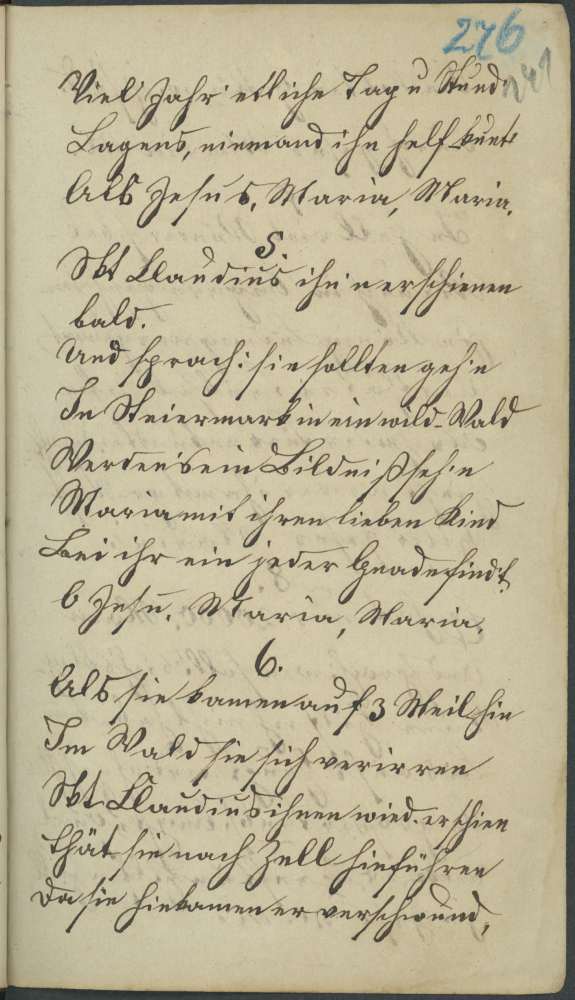 276
241
Viel Jahr etliche Tag u Stund
Lagens, niemand ihn helf kunt
Als Jesus, Maria, Maria.
5.
Skt Claudius ihn'n erschienen
bald.
Und sprach: sie sollten geh'n
In Steiermark in ein wild. Wald
Werden's ein Bildniß seh'n
Maria mit ihren lieben Kind
Bei ihr ein jeder Gnade find't
O Jesu, Maria, Maria.
6.
Als sie kamen auf 3 Meil hin
Im Wald sie sich verirren
Skt Claudius ihnen wied. erschien
thät sie nach Zell hinführen
Da sie hinkamen er verschwund,